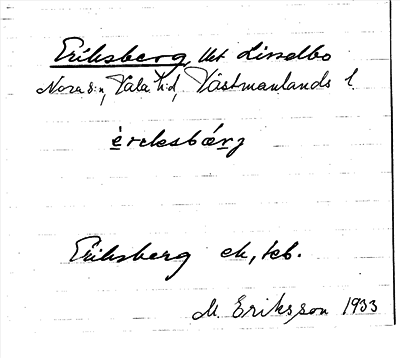 Eriksberg, tht Lisselbo
Nora sn, Vala hd, Västmanlands l.
èrɛksbǽrg
Eriksberg ek, kb.
M. Eriksson 1933